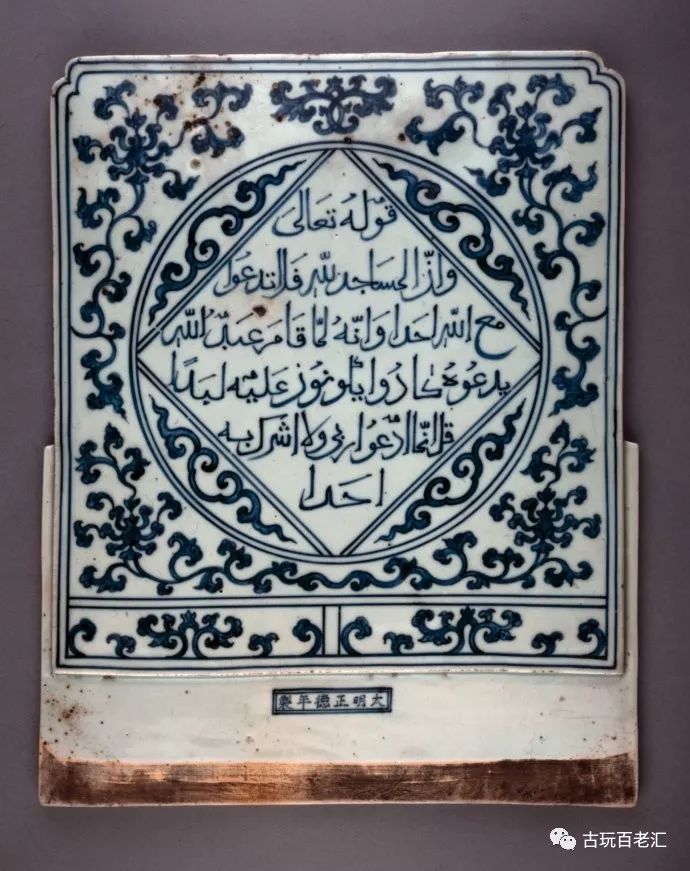 قوله تعالى
وان المساجد لله فلا تدعوا
مع الله احدا وانه لما قام عبد الله
يدعوه كادوا يكونون عليه لبدا
قل انما ادعوا ربي ولا اشرك به
احدا
大明正德年製
古玩百老汇